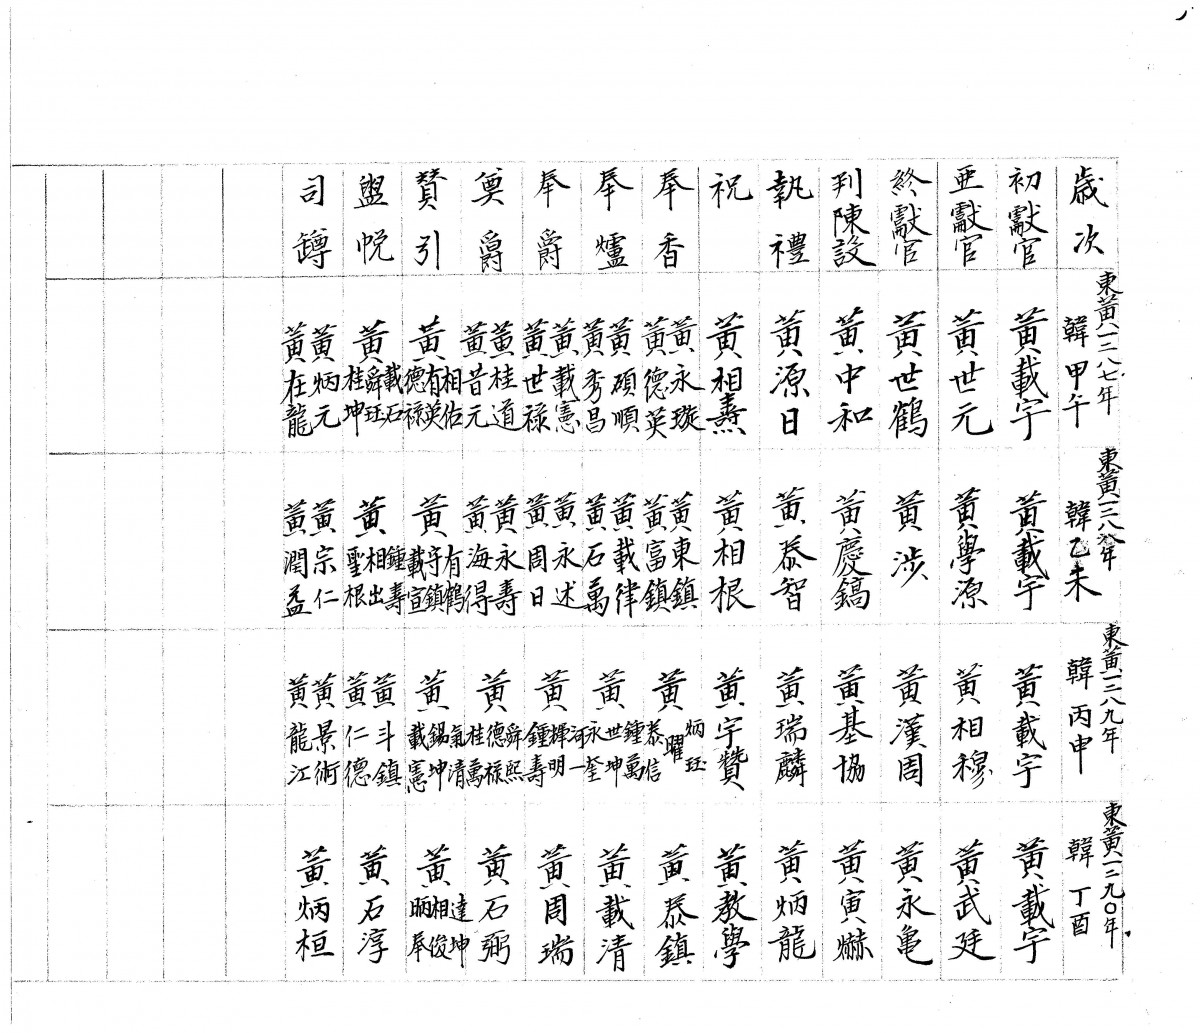 歲次
初獻官
亞獻官
終獻官
判陳設
執禮
祝
奉香
奉爐
奉爵
奠爵
贊引
盥帨
司罇
東黃一二八七年
韓甲午
黃載宇
黃世元
黃世鶴
黃中和
黃源日
黃相燾
黃永璇
黃德英
黃碩順
黃秀昌
黃載憲
黃世祿
黃桂道
黃昔元
黃相佑 有英 德祿
黃載石 舜珏 桂坤
黃炳元
黃在龍
東黃一二八八年
韓乙未
黃載宇
黃學源
黃涉
黃慶鎬
黃泰智
黃相根
黃東鎮
黃富鎮
黃載律
黃石萬
黃永述
黃周日
黃永壽
黃海得
黃有鶴 守鎮 載宣
黃鍾壽 相出 聖根
黃宗仁
黃潤益
東黃一二八九年
韓丙申
黃載宇
黃相穆
黃漢周
黃基協
黃瑞麟
黃宇贊
黃炳珏 曜 泰信
黃鍾萬 世坤 永奎
黃河一 輝明 鍾壽
黃舜熙 德祿 桂萬
黃氣清 錫坤 載憲
黃斗鎮
黃仁德
黃景術
黃龍江
東黃一二九〇年
韓丁酉
黃載宇
黃武廷
黃永亀
黃寅爀
黃炳龍
黃教學
黃泰鎮
黃載清
黃周瑞
黃石弼
黃達坤 相俊 昞奉
黃石淳
黃炳桓